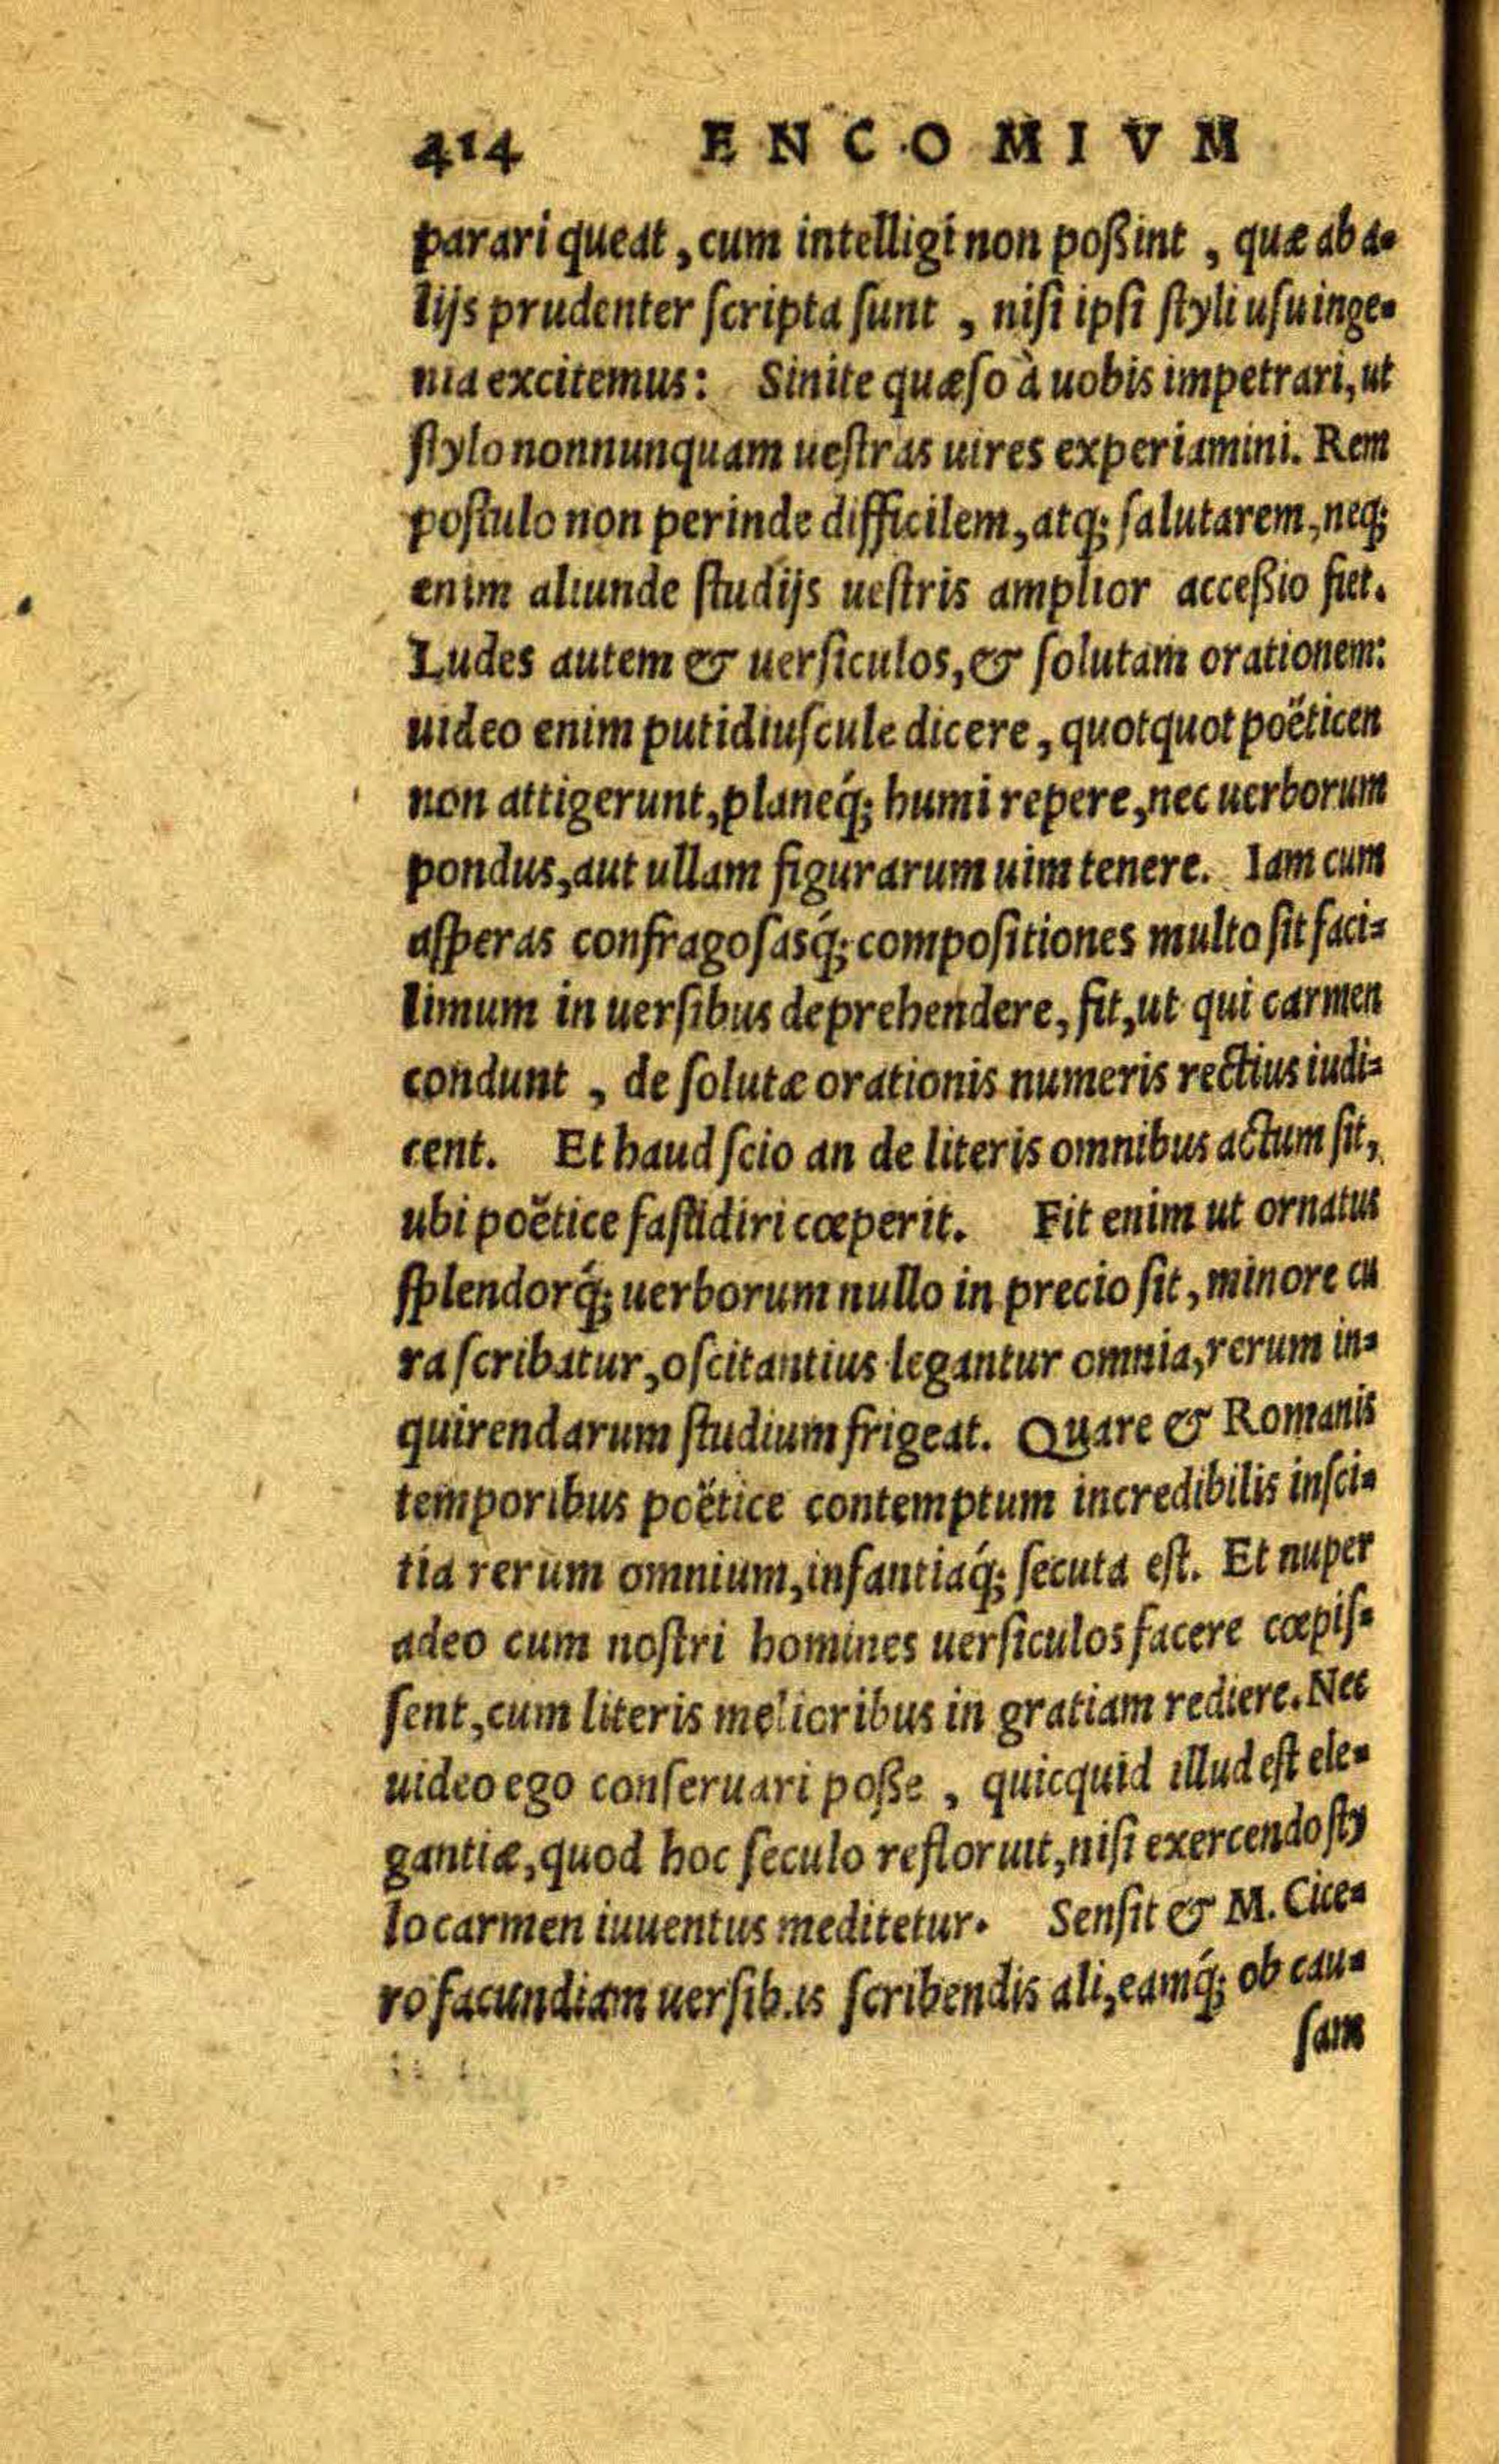 414 ENCOMIVM
parari queat, cum intelligi non poßint, quæ ab a-
lijs prudenter ſcripta ſunt, niſi ipſi ſtyli uſu inge-
nia excitemus: Sinite quæſo à uobis impetrari, ut
ſtylo nonnunquam ueſtras uires experiamini. Rem
poſtulo non perinde difficilem, atq; ſalutarem, neq;
enim aliunde ſtudijs ueſtris amplior acceßio fiet.
Ludes autem & uerſiculos, & ſolutam orationem:
uideo enim putidiuſcule dicere, quotquot poëticen
non attigerunt, planeq́; humi repere, nec uerborum
pondus, aut ullam figurarum uim tenere. Iam cum
aſperas confragoſasq́; compoſitiones multo ſit faci-
limum in uerſibus deprehendere, fit, ut qui carmen
condunt, de ſolutæ orationis numeris rectius iudi-
cent. Et haud ſcio an de literis omnibus actum ſit,
ubi poëtice faſtidiri cœperit. Fit enim ut ornatus
ſplendorq́; uerborum nullo in precio ſit, minore cu
ra ſcribatur, oſcitantius legantur omnia, rerum in-
quirendarum ſtudium frigeat. Quare & Romanis
temporibus poëtice contemptum incredibilis inſci-
tia rerum omnium, infantiaq́; ſecuta eſt. Et nuper
adeo cum noſtri homines uerſiculos facere cœpiſ-
ſent, cum literis melioribus in gratiam rediere. Nec
uideo ego conſeruari poße, quicquid illud eſt ele-
gantiæ, quod hoc ſeculo refloruit, niſi exercendo ſty
lo carmen iuuentus meditetur. Senſit & M. Cice-
ro facundiam uerſibus ſcribendis ali, eamq́; ob cau-
ſam